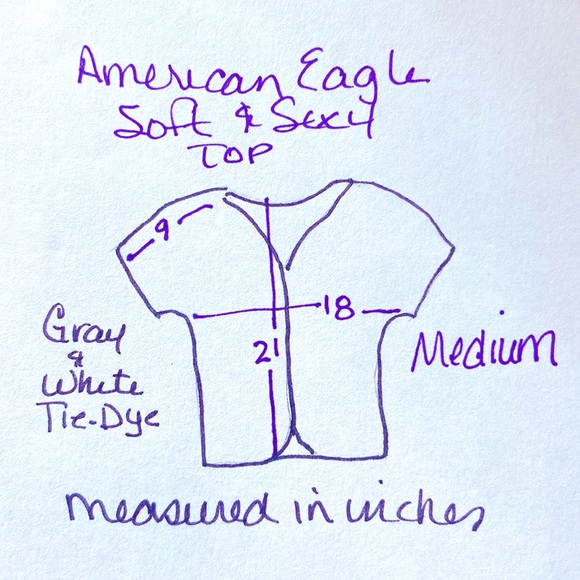 American Eagle
Soft & Sexy
TOP
9
18
21
Gray
&
White
Tie-Dye
Medium
measured in inches